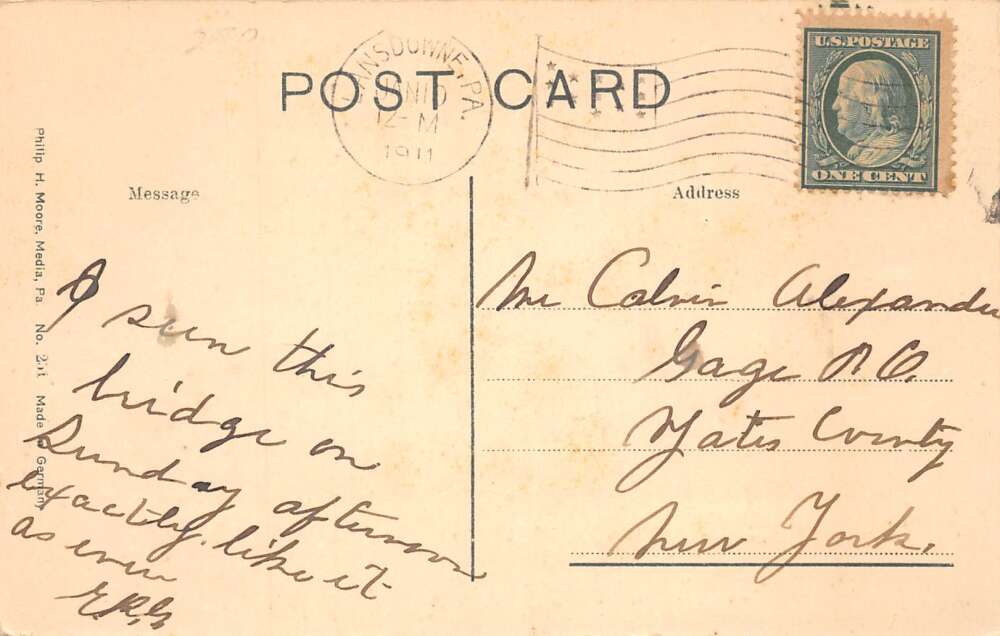 POST CARD
LANSDOWNE, PA.
JAN 10
12-M
1911
U.S. POSTAGE
ONE CENT
Message
Address
Philip H. Moore, Media, Pa. No. Made in Germany
I seen this
bridge on
Sunday afternoon
exactly like it
as ever
Mr Calvin Alexander
Gage P.O.
Yates County
New York.